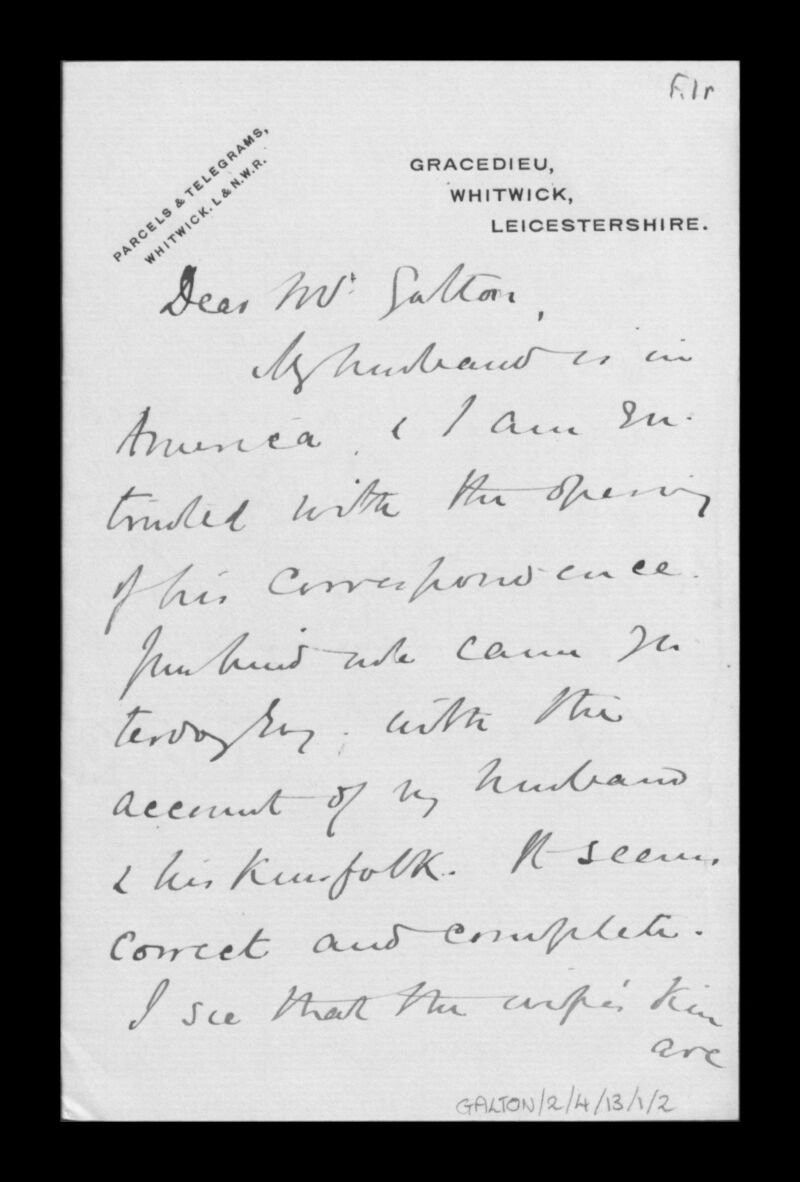 F.1r
PARCELS & TELEGRAMS,
WHITWICK. L & N.W.R.
GRACEDIEU,
WHITWICK,
LEICESTERSHIRE.
Dear Mr. Galton,
My husband is in
America, & I am en-
trusted with the opening
of his correspondence.
Your kind note came yes
terday; with the
account of my husband
& his Kinsfolk. It seems
correct and complete.
I see that the wife's Kin
are
GALTON/2/4/13/1/2